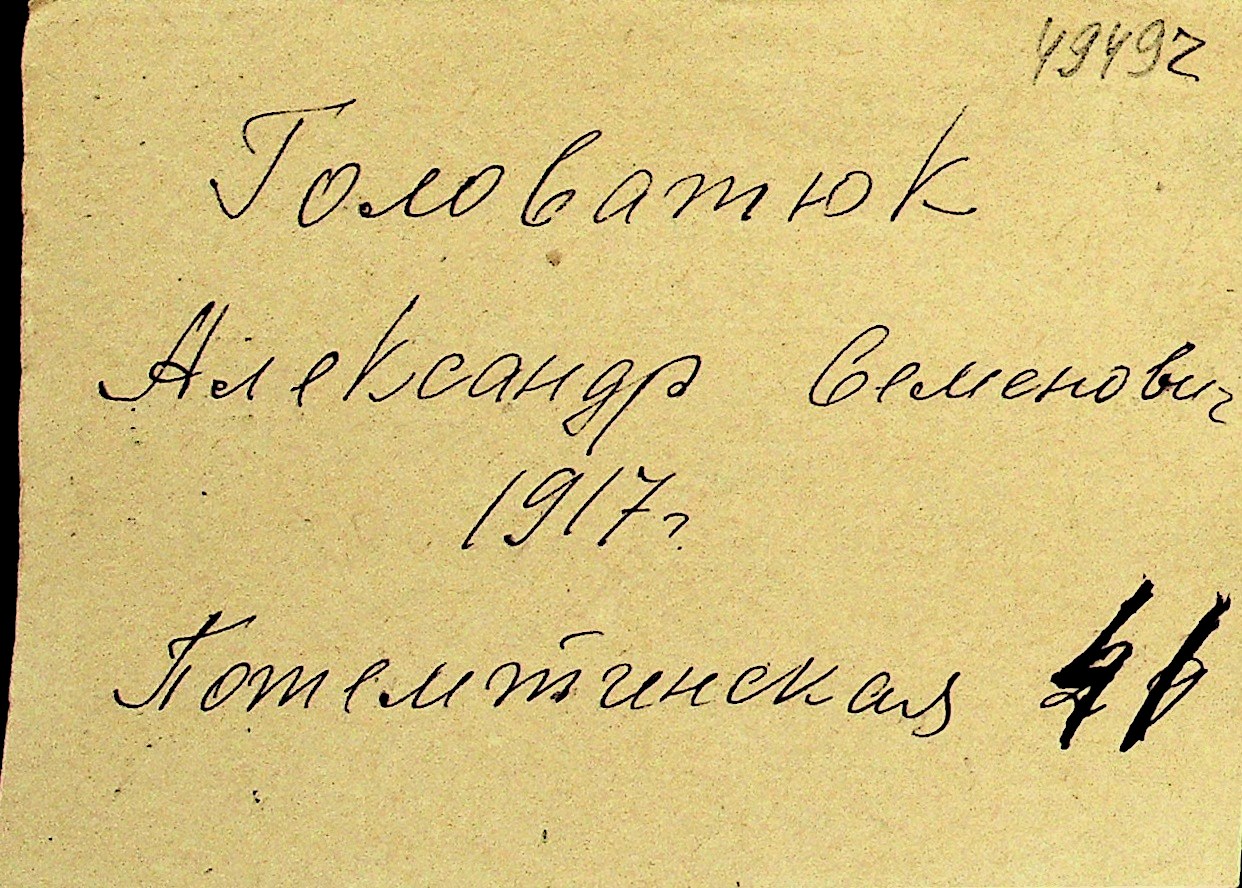 4949ч
Головатюк
Александр Семенович
1917г.
Потемтинская 41